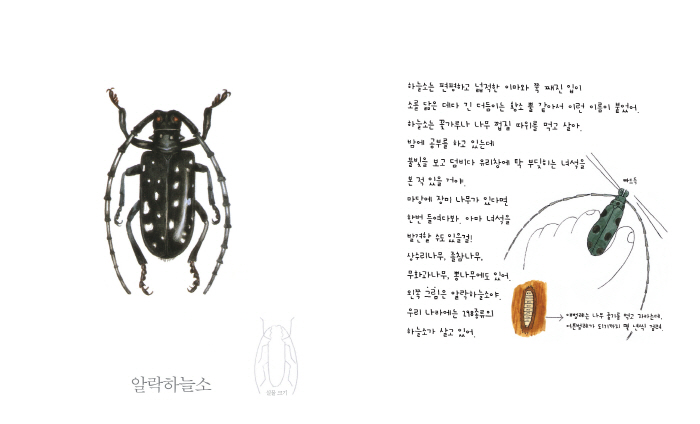 알락하늘소
실물 크기
하늘소는 편평하고 넓적한 이마와 쭉 째진 입이
소를 닮은 데다 긴 더듬이는 황소 뿔 같아서 이런 이름이 붙었어.
하늘소는 꽃가루나 나무 껍질 따위를 먹고 살아.
밤에 공부를 하고 있는데
불빛을 보고 덤비다 유리창에 탁 부딪히는 녀석을
본 적 있을 거야.
마당에 장미 나무가 있다면
한번 들여다봐. 아마 녀석을
발견할 수도 있을걸!
상수리나무, 졸참나무,
무화과나무, 뽕나무에도 있어.
왼쪽 그림은 알락하늘소야.
우리 나라에는 298종류의
하늘소가 살고 있어.
애벌레는 나무 줄기를 먹고 자라는데,
어른벌레가 되기까지 몇 년씩 걸려.